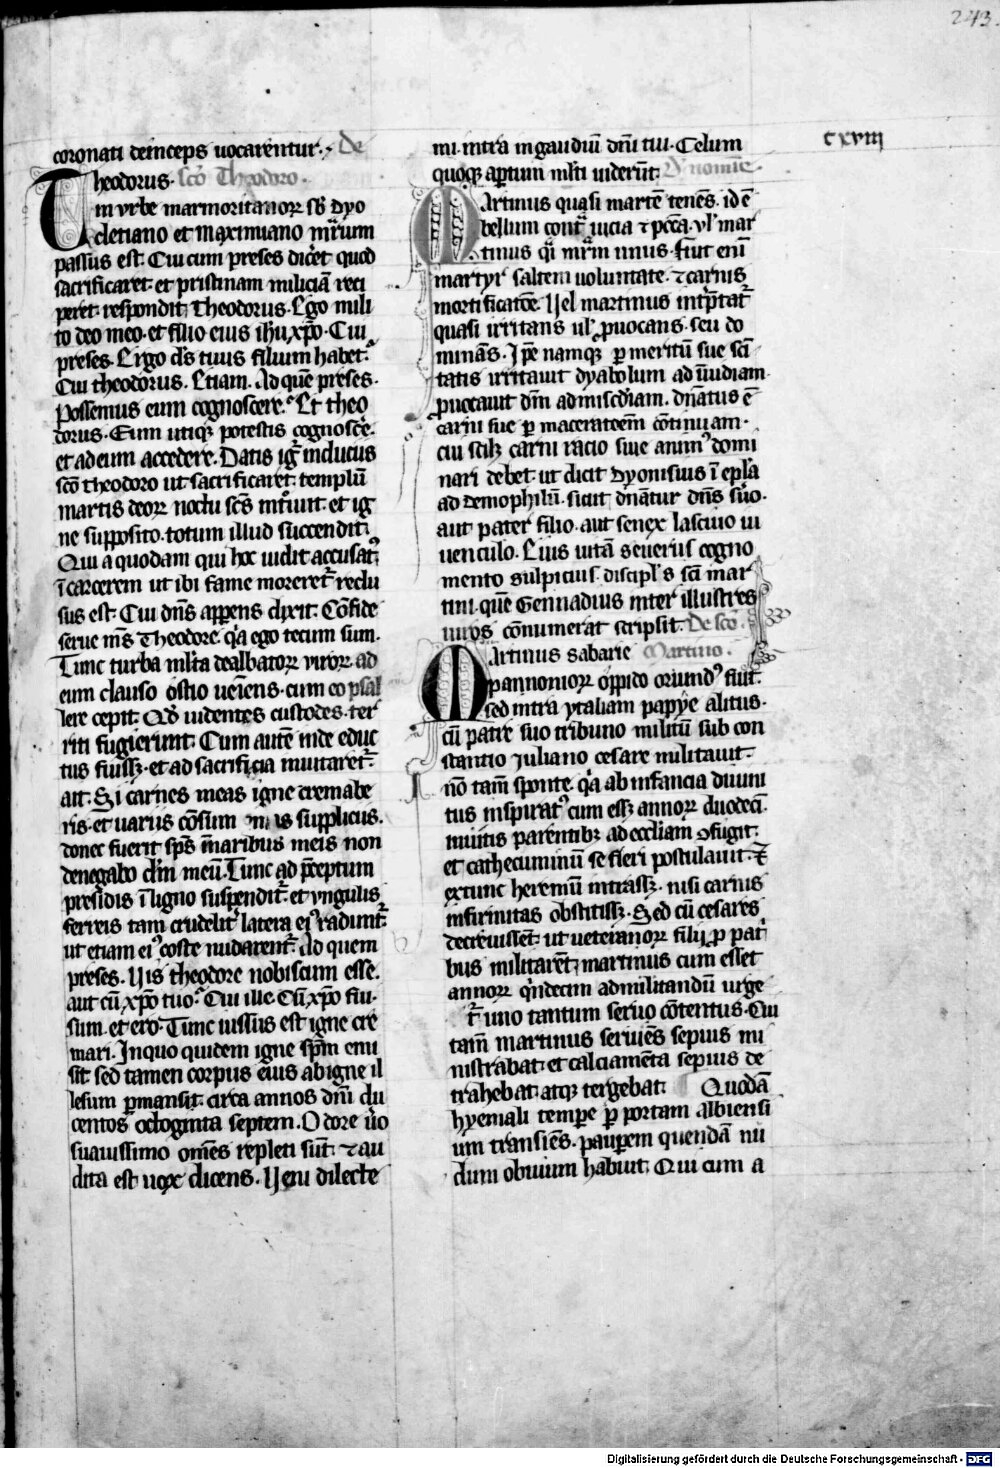 243.
cxviii
coronati deinceps uocarentur. De
Theodorus. sco Theodoro.
in vrbe marmoritanorꝝ sb dyo
cletiano et maximiano mr̄ium
passus est. Cui cum preses dicet quod
sacrificaret et pristinam miliciā reci
peret. respondit Theodorus. Ego mili
to deo meo. et filio eius ihu xp̄o. Cui
preses. Ergo ds tuus filium habet.
Cui theodorus. Etiam. Ad quē preses.
Possemus eum cognoscere. Et theo
dorus. Eum utiqꝫ potestis cognosce.
et ad eum accedere. Datis igr inducus
sco theodoro ut sacrificaret. templū
martis deorꝝ noctu scs intuit. et ig
ne supposito. totum illud succendit.
Qui a quodam qui hoc uidit accusat9
ī carcerem ut ibi fame moreret reclu
sus est. Cui dn̄s appens dixit. Cōfide
serue ms Theodore. qa ego tecum sum.
Tunc turba mlta dealbatorꝝ virorꝝ ad
eum clauso ostio ueiens. cum eo psal
lere cepit. Qd uidentes custodes. ter
riti fugierunt. Cum autē inde educ
tus fuissꝫ. et ad sacrificia inuitaret.
ait. Si carnes meas igne cremabe
ris. et uariis cōsum supplicus.
donec fuerit sps in naribus meis non
denegabo dm meū. Tunc ad p̄ceptum
presidis ī ligno suspendit. et vngulis
ferreis tam crudelit latera ei9 radunt.
ut etiam ei9 coste nudarent. Ad quem
preses. Uis theodore nobiscum esse.
aut cū xp̄o tuo. Cui ille. Cū xp̄o fui.
sum. et ero. Tunc iussus est igne cre
mari. In quo quidem igne spm emi
sit. sed tamen corpus eius ab igne il
lesum pmansit. circa annos dn̄i du
centos octoginta septem. Odore uo
suauissimo om̄es repleti sūt. et au
dita est uox dicens. Ueni dilecte
mi. intra in gaudiū dn̄i tui. Celum
quoqꝫ aptum mlti uiderūt. De nomīe
Martinus quasi martē tenēs. id ē
bellum cont uicia et pcca. vl mar
tinus qi mrm unus. fuit enī
martyr saltem uoluntate. et carnis
mortificatōe. Uel martinus intptat
quasi irritans ul puocans. seu do
minās. Ipe namqꝫ p meritū sue scī
tatis irritauit dyabolum ad īuidiam.
puocauit dm ad miscdiam. dn̄atus ē
carni sue p maceratoēm cōtinuam.
cui scilꝫ carni racio siue anim9 domi
nari debet. ut dicit Dyonisius ī epla
ad demophilū. sicut dn̄atur dn̄s suo.
aut pater filio. aut senex lasciuo iu
uenculo. Eius uitā Seuerus cogno
mento sulpicius. discipls sci mar
tini. quē Gennadius inter illustres
uiros cōnumerat scripsit. De sco
Martinus sabarie Martino.
pannoniorꝝ oppido oriund9 fuit.
sed intra ytaliam papye alitus.
cū patre suo tribuno militū sub con
stantio Iuliano cesare militauit.
nō tam sponte. qa ab infancia diuini
tus inspirat9 cum essꝫ annorꝝ duodecī.
inuitis parentibꝫ ad eccliam ꝯfugit.
et cathecuminū se fieri postulauit. et
extunc heremū intrassꝫ. nisi carnis
infirmitas obstitissꝫ. Sed cū cesares
decreuissent. ut ueteranorꝝ filij p pat
bus militarēt. martinus cum esset
annorꝝ qindecim ad militandū urge
t. uno tantum seruo cōtentus. Cui
tam martinus seruiēs sepius mi
nistrabat. et calciamēta sepius de
trahebat. atqꝫ tergebat. Quodā
hyemali tempe p portam albiensi
um transiēs. paupem quendā nu
dum obuium habuit. Qui cum a
Digitalisierung gefördert durch die Deutsche Forschungsgemeinschaft - DFG